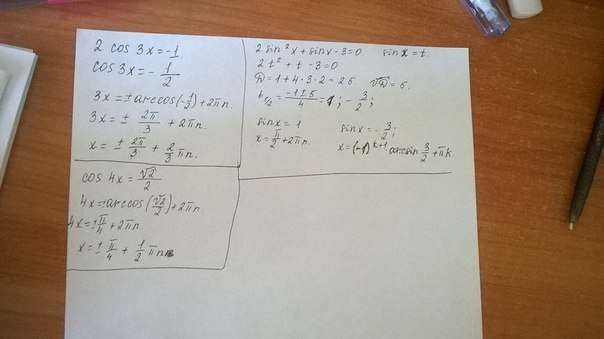 2 cos 3x = -1
cos 3x = - 1/2
3x = ± arccos(-1/2) + 2πn.
3x = ± 2π/3 + 2πn.
x = ± 2π/3 + 2/3 πn.
cos 4x = √2/2
4x = ± arccos(√2/2) + 2πn
4x = ± π/4 + 2πn
x = ± π/4 + 1/2 πn
2 sin²x + sinx - 3 = 0 sin x = t.
2t² + t - 3 = 0
D = 1 + 4·3·2 = 25 √D = 5.
t₁/₂ = (-1 ± 5)/4 = 1; - 3/2;
sinx = 1 sinx = - 3/2;
x = π/2 + 2πn. x = (-1)^(k+1) arcsin 3/2 + πk